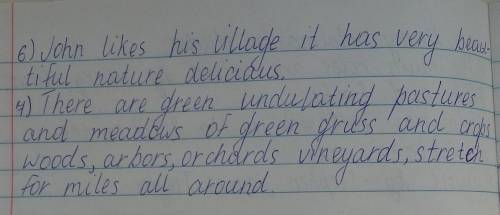 6) John likes his village it has very beau-
tiful nature delicious.
4) There are green undulating pastures
and meadows of green grass and crops
woods, arbors, orchards vineyards, stretch
for miles all around.